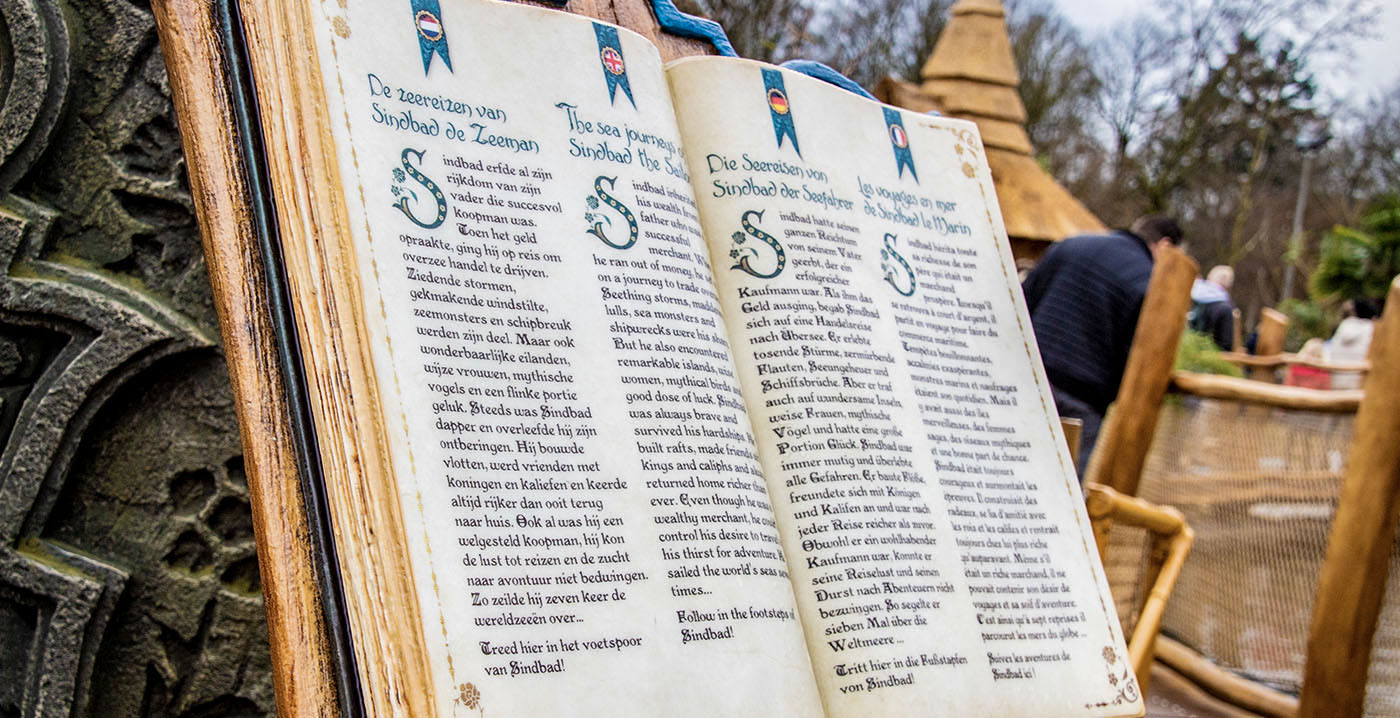 De zeereizen van
Sindbad de Zeeman
Sindbad erfde al zijn
rijkdom van zijn
vader die succesvol
koopman was.
Toen het geld
opraakte, ging hij op reis om
overzee handel te drijven.
Ziedende stormen,
gekmakende windstilte,
zeemonsters en schipbreuk
werden zijn deel. Maar ook
wonderbaarlijke eilanden,
wijze vrouwen, mythische
vogels en een flinke portie
geluk. Steeds was Sindbad
dapper en overleefde hij zijn
ontberingen. Hij bouwde
vlotten, werd vrienden met
koningen en kaliefen en keerde
altijd rijker dan ooit terug
naar huis. Ook al was hij een
welgesteld koopman, hij kon
de lust tot reizen en de zucht
naar avontuur niet bedwingen.
Zo zeilde hij zeven keer de
wereldzeeën over...
Treed hier in het voetspoor
van Sindbad!
The sea journeys
Sindbad the
Sindbad
his wealth
father who
successful
merchant.
he ran out of money, he
on a journey to trade
Seething storms,
lulls, sea monsters and
shipwrecks were his
But he also encountered
remarkable islands,
women, mythical birds
good dose of luck.
was always brave and
survived his hardships.
built rafts, made friends
kings and caliphs and
returned home richer than
ever. Even though he was
wealthy merchant, he
control his desire to
his thirst for adventure.
sailed the world's seas
times...
Follow in the footsteps of
Sindbad!
Die Seereisen von
Sindbad der Seefahrer
Sindbad hatte seinen
ganzen Reichtum
von seinem Vater
geerbt, der ein
erfolgreicher
Kaufmann war. Als ihm das
Geld ausging, begab Sindbad
sich auf eine Handelsreise
nach Übersee. Er erlebte
tosende Stürme, zermürbende
Flauten, Seeungeheuer und
Schiffsbrüche. Aber er traf
auch auf wundersame Inseln,
weise Frauen, mythische
Vögel und hatte eine große
Portion Glück. Sindbad war
immer mutig und überlebte
alle Gefahren. Er baute Flöße,
freundete sich mit Königen
und Kalifen an und war nach
jeder Reise reicher als zuvor.
Obwohl er ein wohlhabender
Kaufmann war, konnte er
seine Reiselust und seinen
Durst nach Abenteuern nicht
bezwingen. So segelte er
sieben Mal über die
Weltmeere ...
Tritt hier in die Fußstapfen
von Sindbad!
Les voyages en mer
de Sindbad le Marin
Sindbad hérita toute
sa richesse de son
père qui était un
marchand
prospère. Lorsqu'il
se retrouva à court d'argent, il
partit en voyage pour faire du
commerce maritime.
Tempêtes bouillonnantes,
accalmies exaspérantes,
monstres marins et naufrages
étaient son quotidien. Mais il
y avait aussi des îles
merveilleuses, des femmes
sages, des oiseaux mythiques
et une bonne part de chance.
Sindbad était toujours
courageux et surmontait les
épreuves. Il construisit des
radeaux, se lia d'amitié avec
les rois et les califes et rentrait
toujours chez lui plus riche
qu'auparavant. Même s'il
était un riche marchand, il ne
pouvait contenir son désir de
voyages et sa soif d'aventure.
C'est ainsi qu'à sept reprises il
parcourut les mers du globe ...
Suivez les aventures de
Sindbad ici !